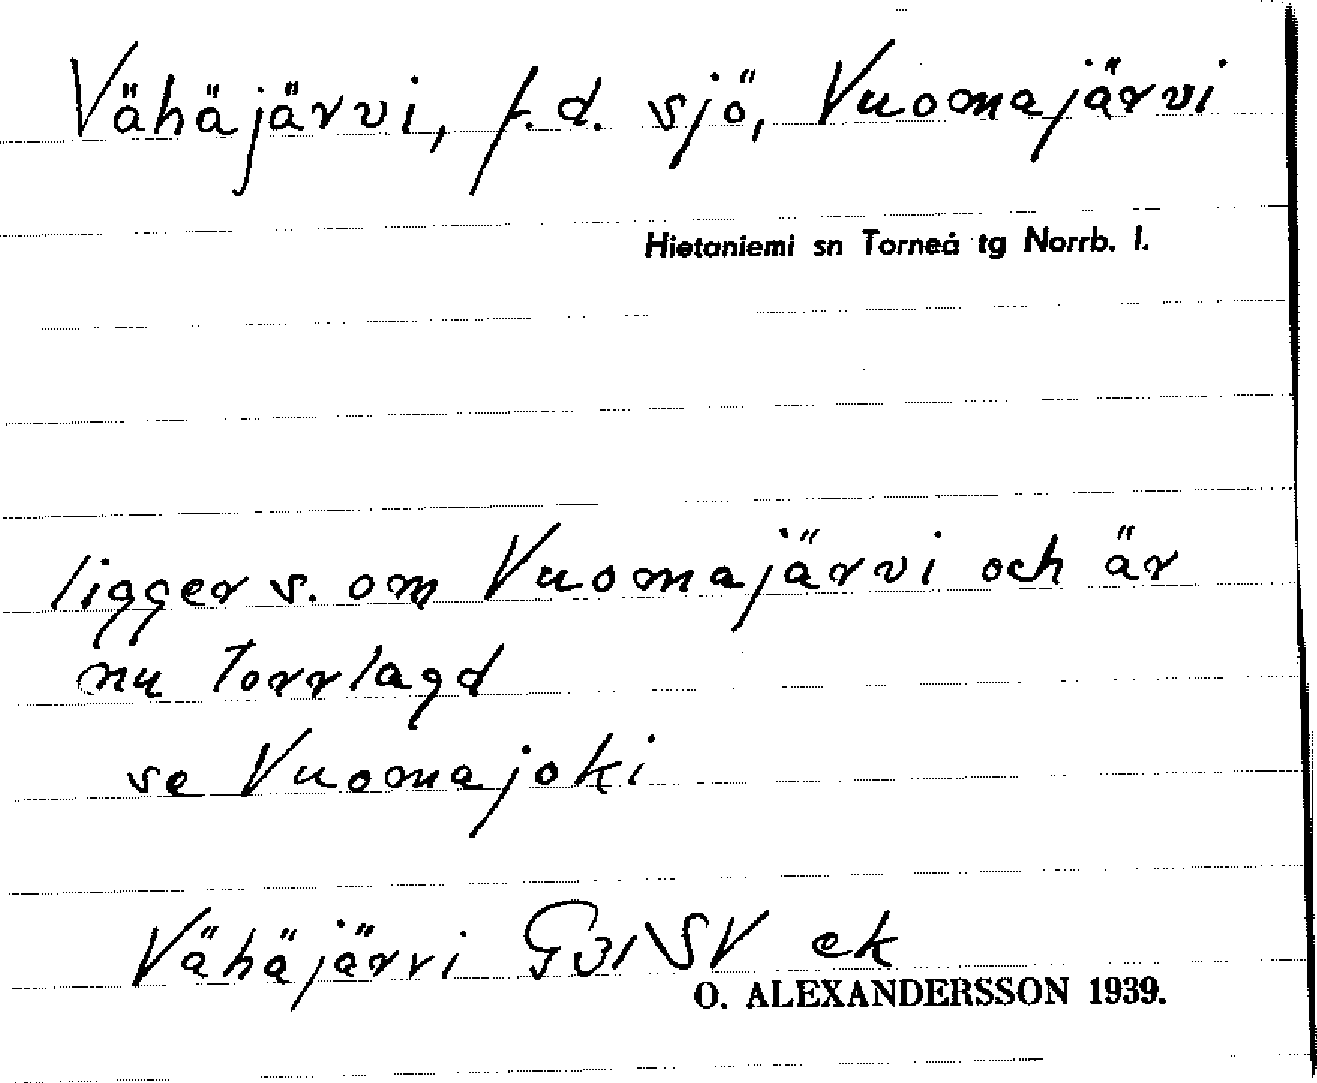 Vähäjärvi, f.d. sjö, Vuomajärvi
Hietaniemi sn Torneå tg Norrb. l.
ligger s. om Vuomajärvi och är
nu torrlagd
se Vuomajoki
Vähäjärvi G31SV ek
O. ALEXANDERSSON 1939.